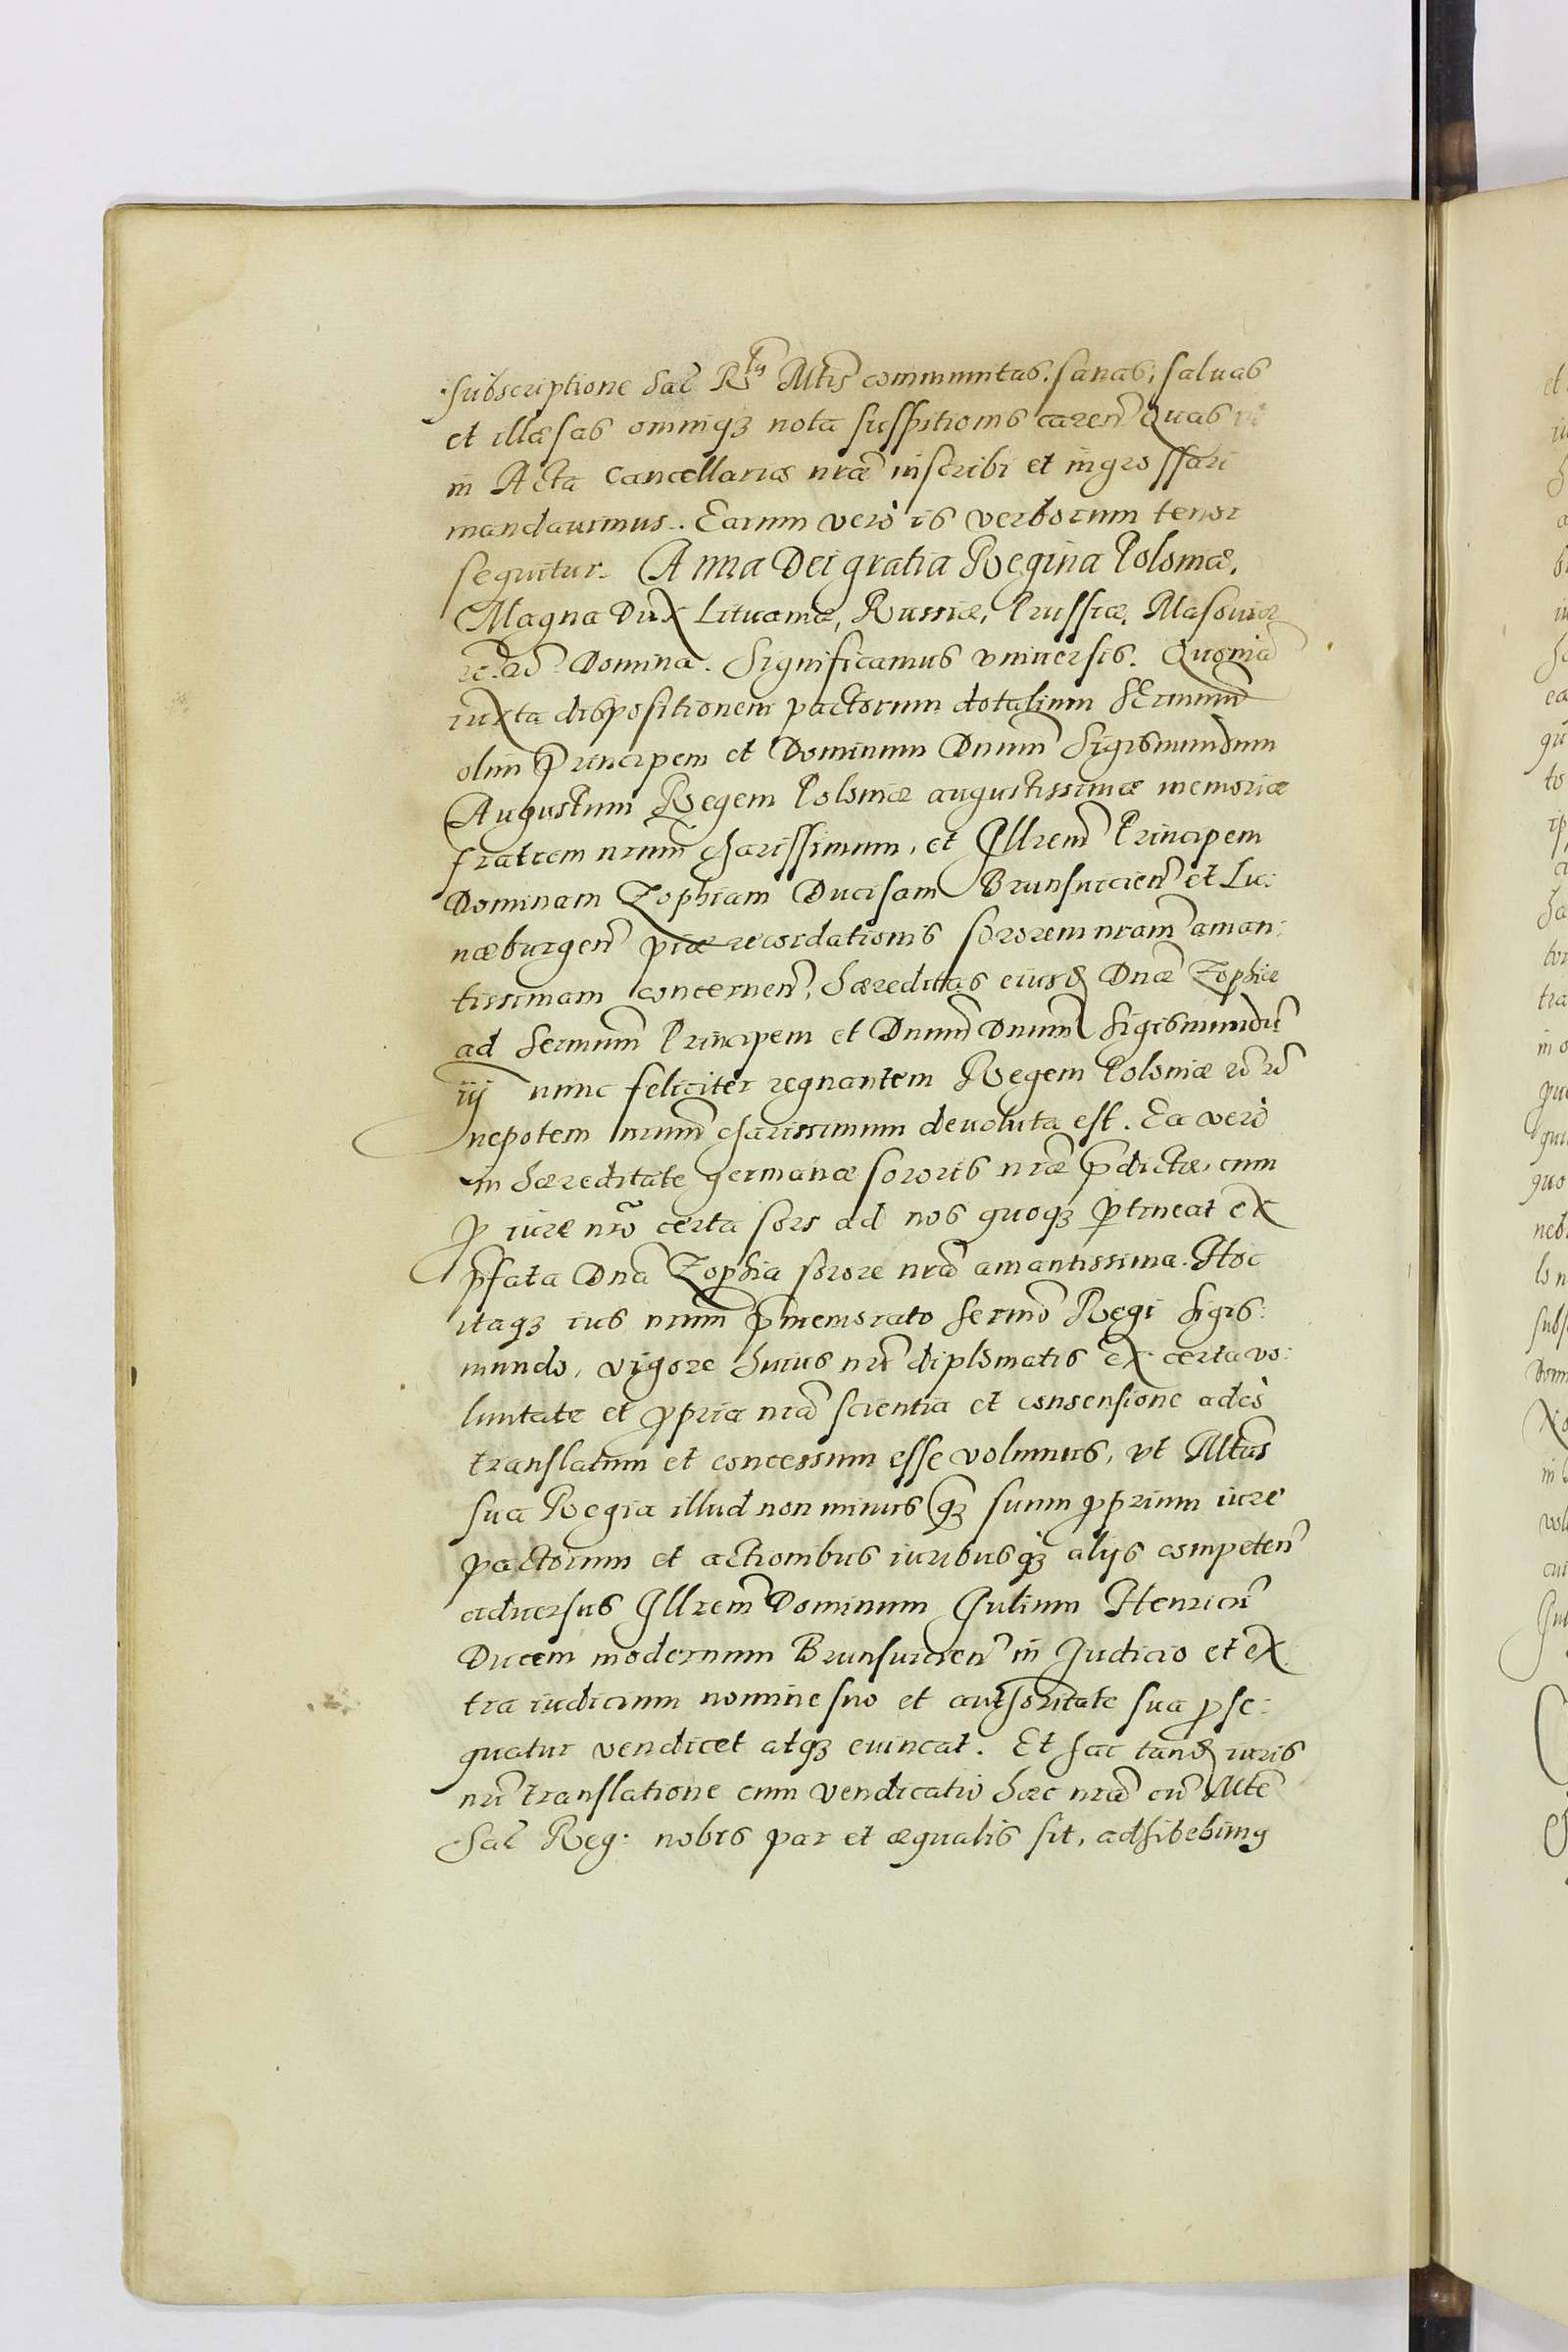 subscriptione Sac Rtis Mtis communitas, sanas, saluas
et illæsas omniq3 nota suspitionis caren̄ Quas vt
in Acta Cancellariæ nræ̃ inscribi et ingrossari
mandauimus. Earum verò is verborum tenor
sequitur. Anna Dei gratia Regina Poloniæ,
Magna Dux Lituaniæ, Russiæ, Prussiæ, Masouiæ
rc. ac̃ Domina. Significamus vniuersis. Quoniã
iuxta dispositionem pactorum dotalium SErmum̃
olim Principem et Dominum Dnum̃ Sigismundum
Augustum Regem Poloniæ augustissimæ memoriæ
fratrem nrum̃ charissimum, et Illrem̃ Principem
Dominam Zophiam Ducisam Brunsuicien̄ et Lu:
næburgen̄ piæ recordationis sororem nram̃ aman:
tissimam concernen̄, hæreditas eiusd Dnæ̃ Zophiæ
ad Sermum̃ Principem et Dnum̃ Dnum̃ Sigismundũ
iij nunc feliciter regnantem Regem Poloniæ rc̃ rc̃
nepotem nrum̃ charissimum deuoluta est. Ea verò
in hæreditate germanæ sororis nræ̃ p̄dictæ, cum
p iure nrõ certa sors ad nos quoq3 ptineat ex
p̄fata Dnã Zophia sorore nrã amantissima. Hoc
itaq3 ius nrum̃ p̄memorato Sermõ Regi Sigis:
mundo, vigore huius nrĩ diplomatis ex certa vo:
luntate et ppria nrã scientia et consensione adeò
translatum et concessum esse volumus, vt Mtas̃
sua Regia illud non minus q3 suum pprium iure
pactorum et actionibus iuribusq3 alijs competen̄
aduersus Illrem̃ Dominum Iulium Henricũ
Ducem modernum Brunsuicien̄ in Iudicio et ex
tra iudicium nomine suo et authoritate sua pse:
quatur vendicet atq3 euincat. Et hac tand iuris
nrĩ translatione cum vendicatio hæc nrã cũ Mtē
Sac Reg: nobis par et æqualis sit, adhibebimg